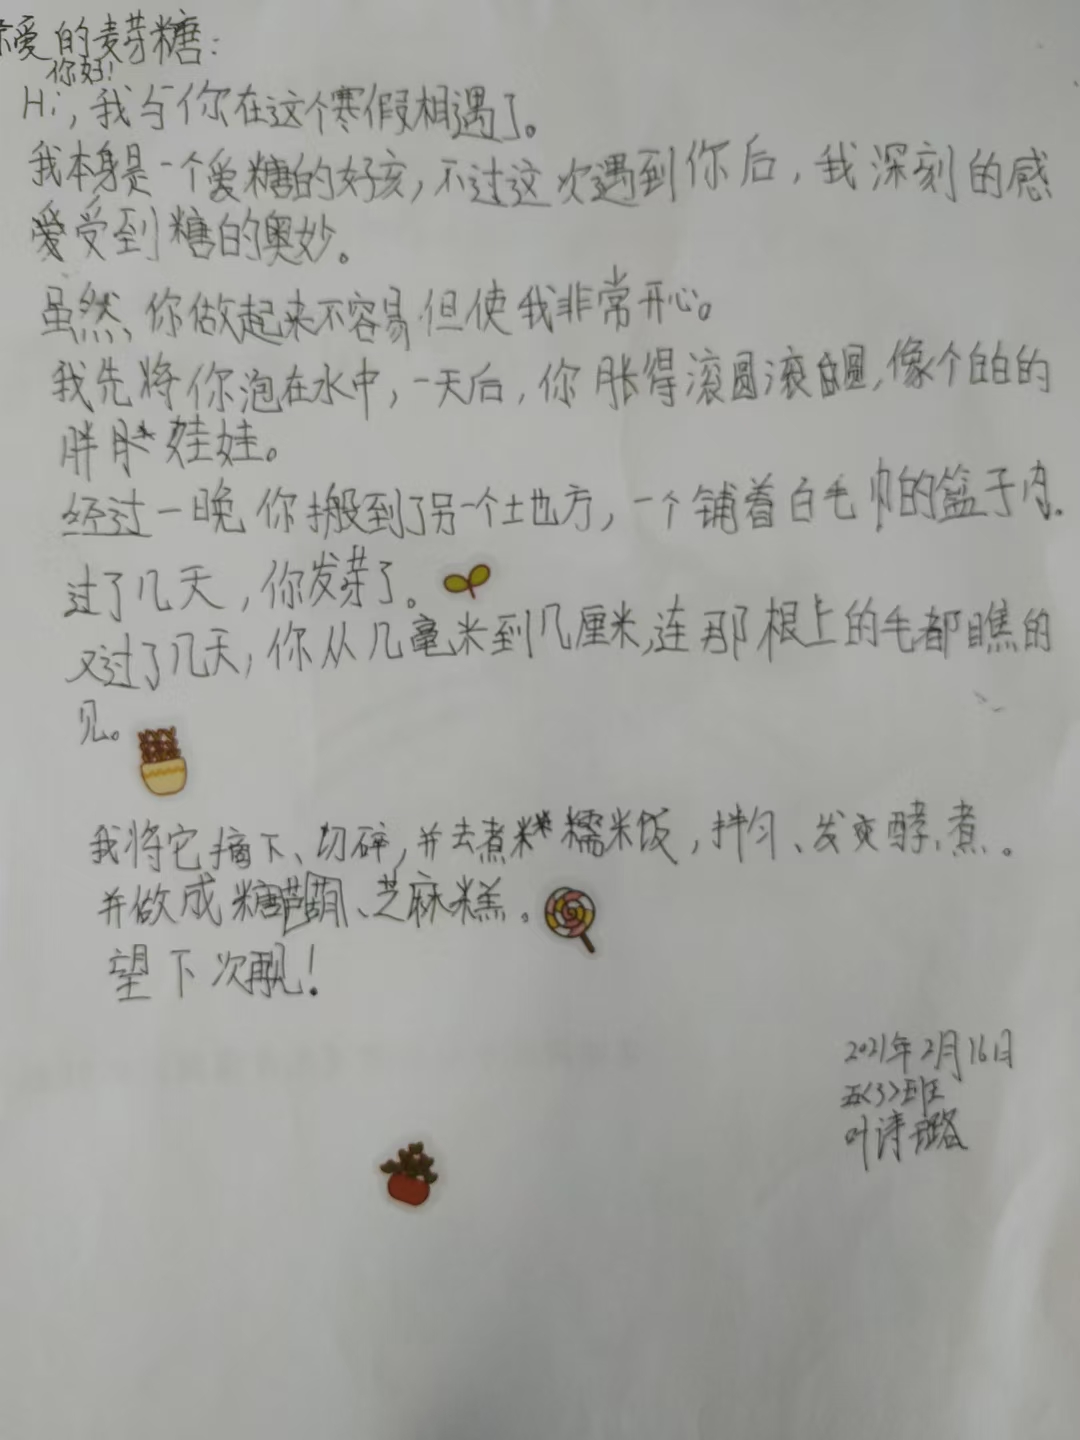 亲爱的麦芽糖：
你好！
Hi，我与你在这个寒假相遇了。
我本身是一个爱糖的好孩，不过这次遇到你后，我深刻的感
受到糖的奥妙。
虽然，你做起来不容易但使我非常开心。
我先将你泡在水中，一天后，你胀得滚圆滚圆，像个白白的
胖娃娃。
经过一晚你搬到了另一个土地方，一个铺着白毛巾的篮子内.
过了几天，你发芽了。
又过了几天，你从几毫米到几厘米，连那根上的毛都瞧的
见。
我将它摘下、切碎，并去煮糯米饭，拌匀、发酵、煮。
并做成糖葫芦、芝麻糕。
望下次再见！
2021年2月16日
五〈3〉班
叶诗璐